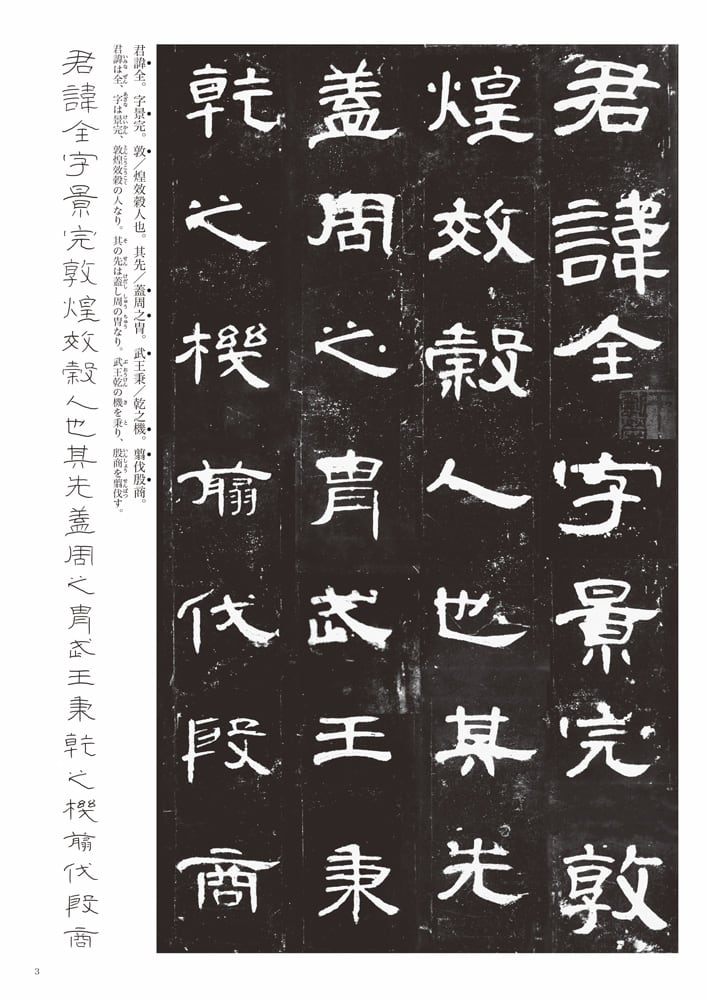 君諱全字景完敦
煌效穀人也其先
蓋周之冑武王秉
乾之機翦伐殷商
君諱全。字景完。敦／煌效穀人也。其先／蓋周之冑。武王秉／乾之機。翦伐殷商。
君諱は全、字は景完、敦煌效穀の人なり。其の先は蓋し周の冑なり。武王乾の機を秉り、殷商を翦伐す。
君諱全字景完敦煌效穀人也其先蓋周之冑武王秉乾之機翦伐殷商
3